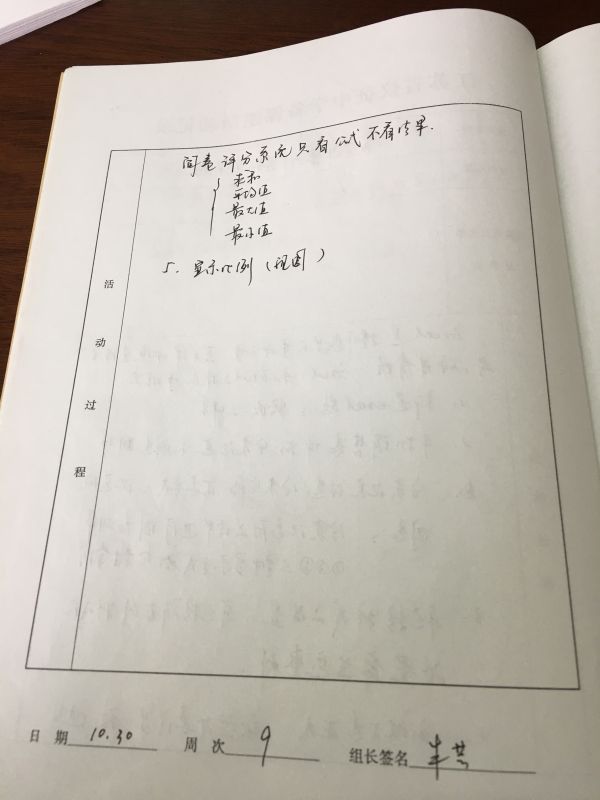 阅卷评分系统只看公式不看结果.
求和
平均值
最大值
最小值
5. 显示比例（视图）
活动过程
日 期 10.30 周 次 9 组长签名